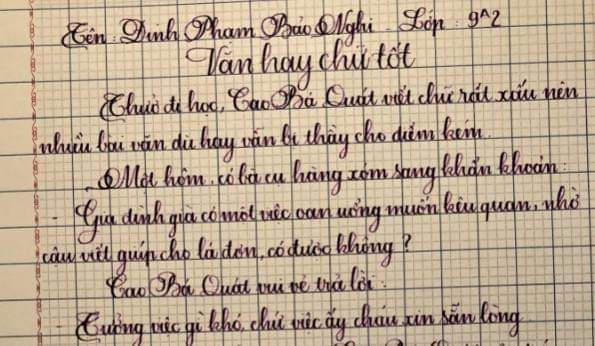 Tên: Đinh Phạm Bảo Nghi - Lớp: 9^2
Văn hay chữ tốt
Thuở đi học, Cao Bá Quát viết chữ rất xấu nên
nhiều bài văn dù hay vẫn bị thầy cho điểm kém.
Một hôm, có bà cụ hàng xóm sang khẩn khoản:
- Gia đình già có một việc oan uổng muốn kêu quan, nhờ
cậu viết giúp cho lá đơn, có được không?
Cao Bá Quát vui vẻ trả lời:
- Tưởng việc gì khó, chứ việc ấy cháu xin sẵn lòng.